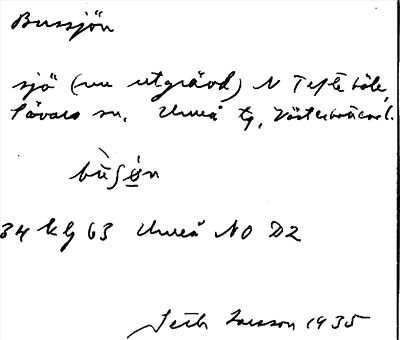 Bussjön
sjö (nu utgrävd) N Tefteböle,
Sävars sn. Umeå tg, Västerbotten l.
34 kg 63 Umeå NO D2
Seth Larsson 1935